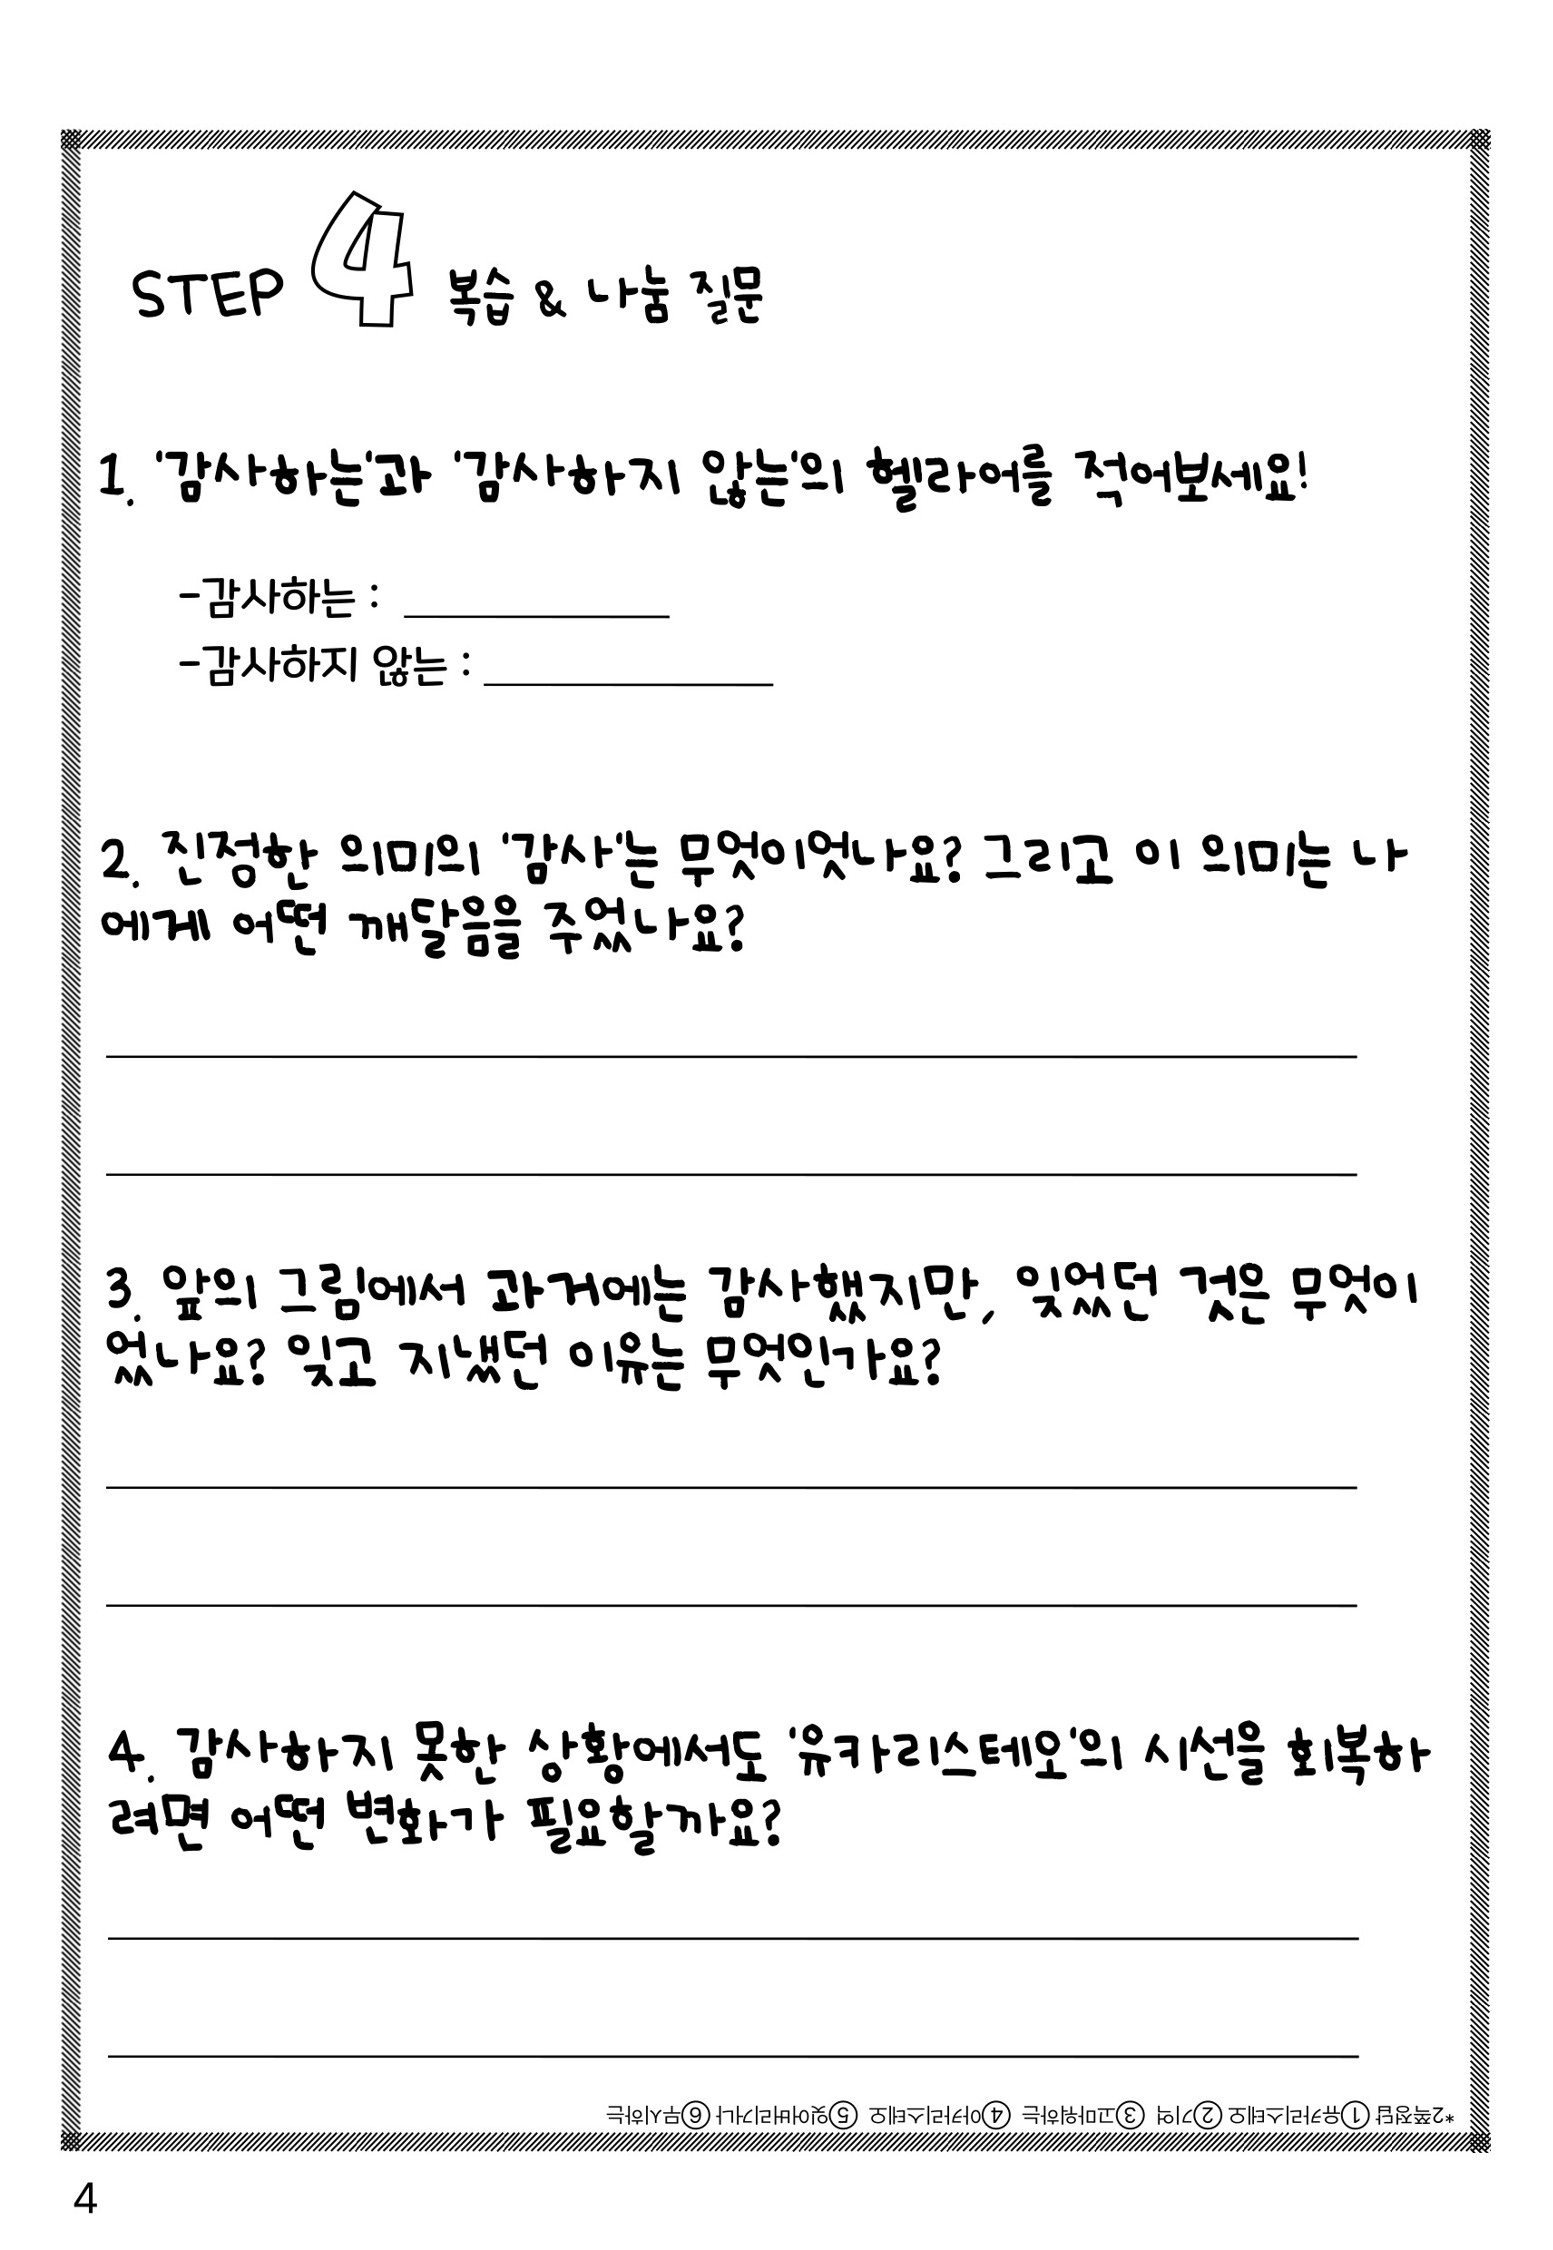 STEP 4 복습 & 나눔 질문
1. '감사하는'과 '감사하지 않는'의 헬라어를 적어보세요!
-감사하는 :
-감사하지 않는 :
2. 진정한 의미의 '감사'는 무엇이엇나요? 그리고 이 의미는 나
에게 어떤 깨달음을 주었나요?
3. 앞의 그림에서 과거에는 감사했지만, 잊었던 것은 무엇이
었나요? 잊고 지냈던 이유는 무엇인가요?
4. 감사하지 못한 상황에서도 '유카리스테오'의 시선을 회복하
려면 어떤 변화가 필요할까요?
*2쪽정답 ①유카리스테오 ②기억 ③고마워하는 ④아카리스테오 ⑤잊어버리거나 ⑥무시하는
4